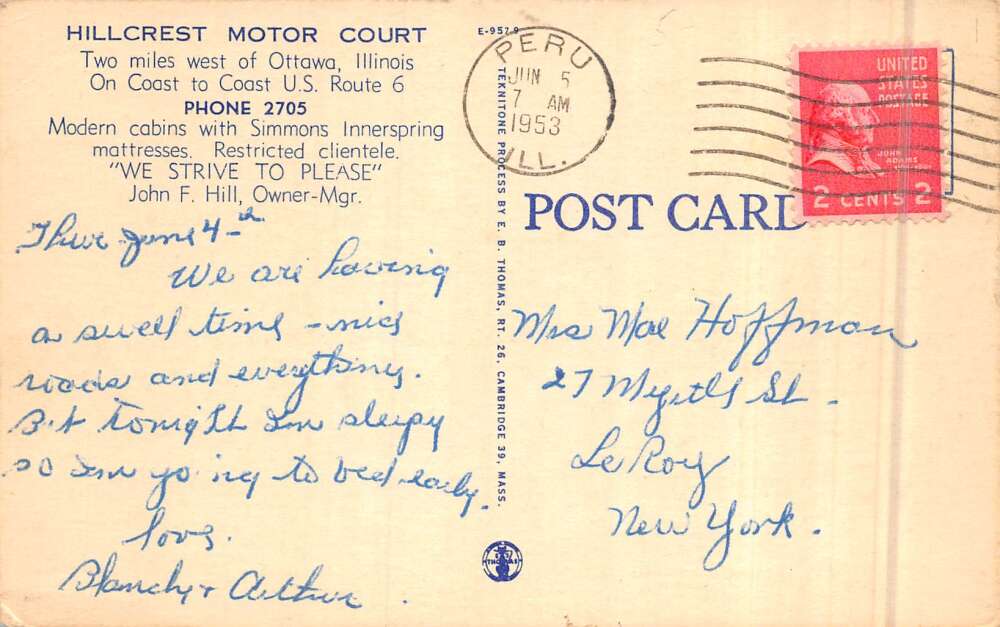 HILLCREST MOTOR COURT
Two miles west of Ottawa, Illinois
On Coast to Coast U.S. Route 6
PHONE 2705
Modern cabins with Simmons Innerspring
mattresses. Restricted clientele.
"WE STRIVE TO PLEASE"
John F. Hill, Owner-Mgr.
Thur June 4-th
We are having
a swell time - nice
roads and everything.
But tonight Im sleepy
so Im going to bed early.
love.
Blanche + Arthur.
E-9579
TEKNITONE PROCESS BY E. B. THOMAS, RT. 26, CAMBRIDGE 39, MASS.
THOMAS
PERU
JUN 5
7 AM
1953
ILL.
UNITED
STATES
POSTAGE
JOHN
ADAMS
2 CENTS 2
POST CARD
Mrs Mae Hoffman
27 Myrtle St.
Le Roy
New York.